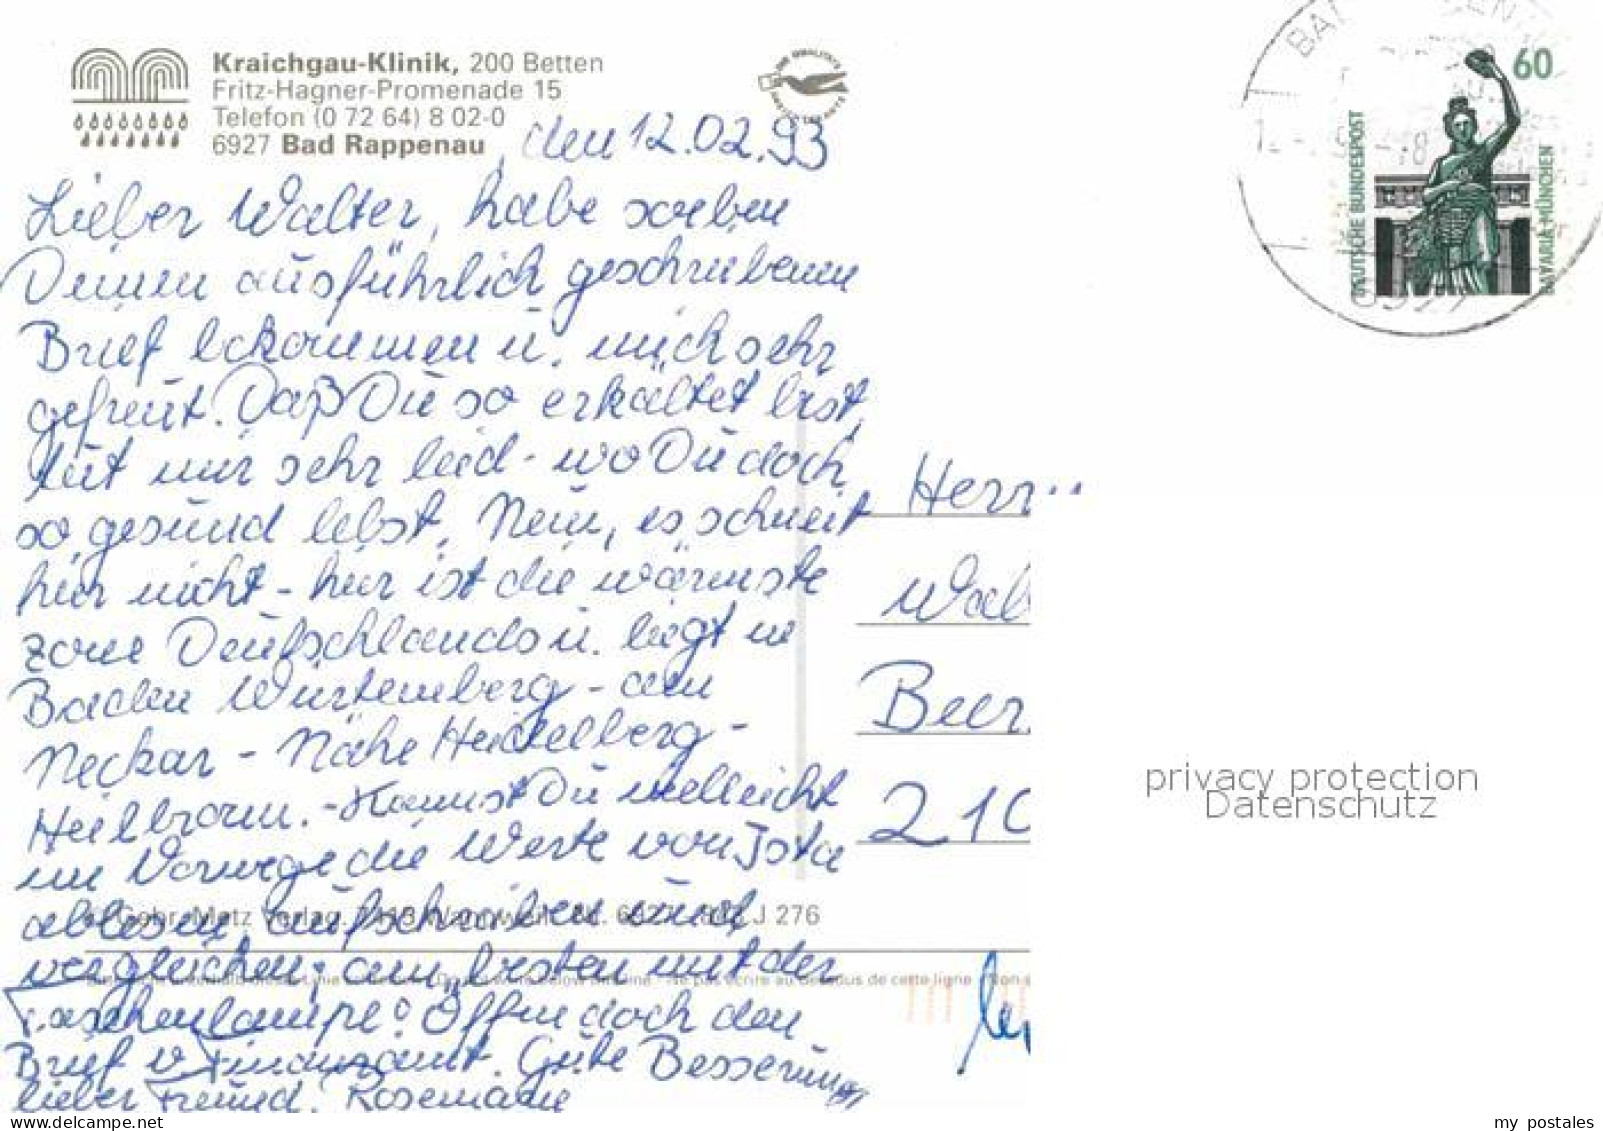 Kraichgau-Klinik, 200 Betten
Fritz-Hagner-Promenade 15
Telefon (0 72 64) 8 02-0
6927 Bad Rappenau, den 12.02.93
Lieber Walter, habe soeben
Deinen ausführlich geschriebenen
Brief bekommen u. mich sehr
gefreut. Daß Du so erkältet bist,
tut mir sehr leid - wo Du doch
so gesund lebst. Nein, es schneit
hier nicht - hier ist die wärmste
Zone Deutschlands u. liegt in
Baden Würtemberg - am
Neckar - Nähe Heidelberg -
Heilbronn. - Kannst Du vielleicht
im Vorwege die Werte von Ista
ablesen, aufschreiben und
vergleichen, am besten mit der
Taschenlampe? Öffne doch den
Brief v. Finanzamt. Gute Besserung
lieber Freund! Rosemarie
Gebr. Metz Verlag, 276
Ne pas écrire au dessous de cette ligne
60
DEUTSCHE BUNDESPOST
BAVARIA MÜNCHEN
Herrn
Wal
Beer
210
privacy protection
Datenschutz
my postales